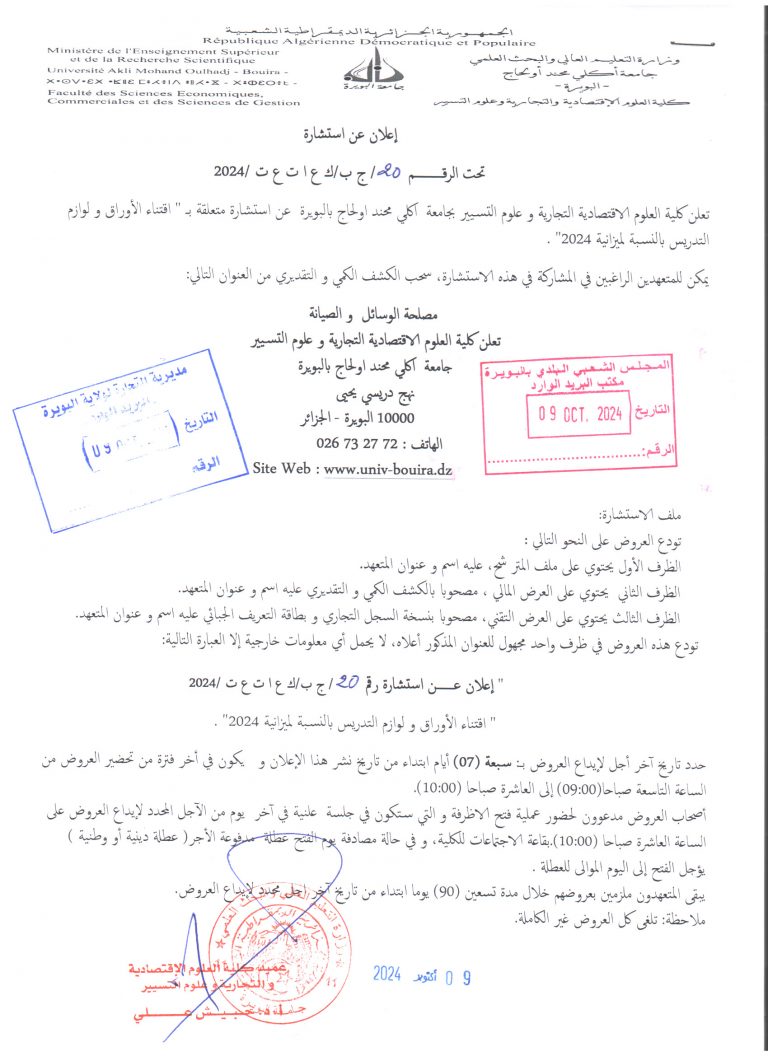 الجمهورية الجزائرية الديمقراطية الشعبية
République Algérienne Démocratique et Populaire
Ministère de l'Enseignement Supérieur
et de la Recherche Scientifique
Université Akli Mohand Oulhadj - Bouira -
Faculté des Sciences Economiques,
Commerciales et des Sciences de Gestion
جامعة البويرة
وزارة التعليم العالي والبحث العلمي
جامعة أكلي محند أولحاج
- البويرة -
كلية العلوم الإقتصادية والتجارية وعلوم التسيير
إعلان عن استشارة
تحت الرقـــــم 20/ ج ب/ك ع ا ت ع ت /2024
تعلن كلية العلوم الاقتصادية التجارية و علوم التسيير بجامعة اكلي محند اولحاج بالبويرة عن استشارة متعلقة بـ " اقتناء الأوراق و لوازم
التدريس بالنسبة لميزانية 2024" .
يمكن للمتعهدين الراغبين في المشاركة في هذه الاستشارة، سحب الكشف الكمي و التقديري من العنوان التالي:
مصلحة الوسائل و الصيانة
تعلن كلية العلوم الاقتصادية التجارية و علوم التسيير
جامعة اكلي محند اولحاج بالبويرة
نهج دريسي يحيى
10000 البويرة - الجزائر
الهاتف : 72 27 73 026
Site Web : www.univ-bouira.dz
مديرية التجارة لولاية البويرة
التاريخ
الرقم
المجلس الشعبي البلدي بالبويرة
مكتب البريد الوارد
التاريخ 09 OCT. 2024
الرقم:
ملف الاستشارة:
تودع العروض على النحو التالي :
الظرف الأول يحتوي على ملف المتر شح، عليه اسم و عنوان المتعهد.
الظرف الثاني يحتوي على العرض المالي ، مصحوبا بالكشف الكمي و التقديري عليه اسم و عنوان المتعهد.
الظرف الثالث يحتوي على العرض التقني، مصحوبا بنسخة السجل التجاري و بطاقة التعريف الجبائي عليه اسم و عنوان المتعهد.
تودع هذه العروض في ظرف واحد مجهول للعنوان المذكور أعلاه، لا يحمل أي معلومات خارجية إلا العبارة التالية:
" إعلان عـــن استشارة رقم 20/ ج ب/ك ع ا ت ع ت /2024
" اقتناء الأوراق و لوازم التدريس بالنسبة لميزانية 2024" .
حدد تاريخ آخر أجل لإيداع العروض بـ: سبعة (07) أيام ابتداء من تاريخ نشر هذا الإعلان و يكون في أخر فترة من تحضير العروض من
الساعة التاسعة صباحا(09:00) إلى العاشرة صباحا (10:00).
أصحاب العروض مدعوون لحضور عملية فتح الاظرفة و التي ستكون في جلسة علنية في آخر يوم من الآجل المحدد لإيداع العروض على
الساعة العاشرة صباحا (10:00).بقاعة الاجتماعات للكلية، و في حالة مصادفة يوم الفتح عطلة مدفوعة الأجر( عطلة دينية أو وطنية )
يؤجل الفتح إلى اليوم الموالي للعطلة .
يبقى المتعهدون ملزمين بعروضهم خلال مدة تسعين (90) يوما ابتداء من تاريخ آخر اجل محدد لإيداع العروض.
ملاحظة: تلغى كل العروض غير الكاملة.
09 أكتوبر 2024
عميد كلية العلوم الإقتصادية
و التجارية و علوم التسيير